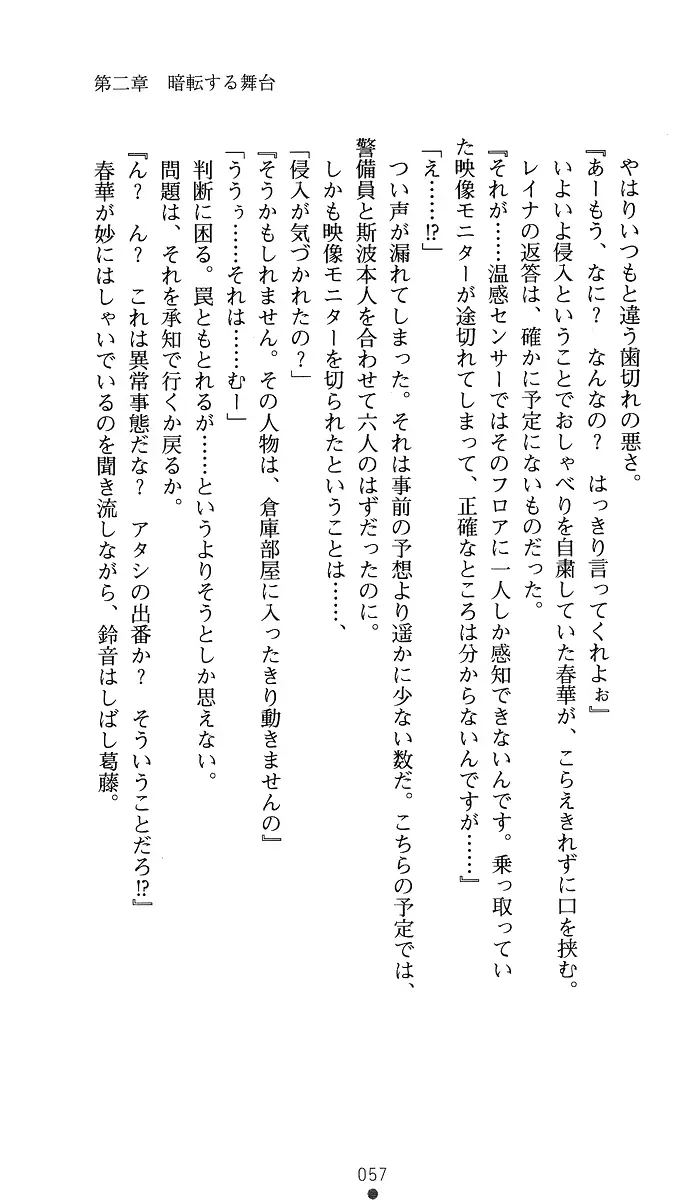 第二章　暗転する舞台
　やはりいつもと違う歯切れの悪さ。
『あーもう、なに？　なんなの？　はっきり言ってくれよぉ』
　いよいよ侵入ということでおしゃべりを自粛していた春華が、こらえきれずに口を挟む。
　レイナの返答は、確かに予定にないものだった。
『それが……温感センサーではそのフロアに一人しか感知できないんです。乗っ取ってい
た映像モニターが途切れてしまって、正確なところは分からないんですが……』
「え……⁉」
　つい声が漏れてしまった。それは事前の予想より遥かに少ない数だ。こちらの予定では、
警備員と斯波本人を合わせて六人のはずだったのに。
　しかも映像モニターを切られたということは……、
「侵入が気づかれたの？」
『そうかもしれません。その人物は、倉庫部屋に入ったきり動きませんの』
「ううぅ……それは……むー」
　判断に困る。罠ともとれるが……というよりそうとしか思えない。
　問題は、それを承知で行くか戻るか。
『ん？　ん？　これは異常事態だな？　アタシの出番か？　そういうことだろ⁉』
　春華が妙にはしゃいでいるのを聞き流しながら、鈴音はしばし葛藤。
057